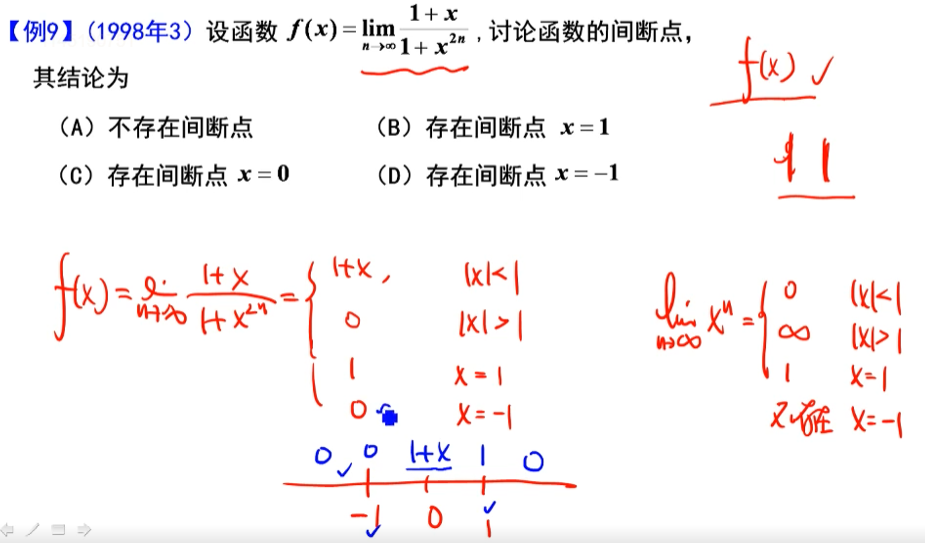 【例9】(1998年3) 设函数 f(x) = lim_{n→∞} (1+x)/(1+x^{2n}) , 讨论函数的间断点,
其结论为
(A) 不存在间断点 (B) 存在间断点 x = 1
(C) 存在间断点 x = 0 (D) 存在间断点 x = −1
f(x) ✓
f(x) = lim_{n→∞} (1+x)/(1+x^{2n}) = { 1+x, |x|<1
0 |x|>1
1 x = 1
0 x = −1
lim_{n→∞} x^n = { 0 |x|<1
∞ |x|>1
1 x=1
不存在 x=−1
0 ✓ 0 1+x 1 0
−1 ✓ 0 ✓ 1